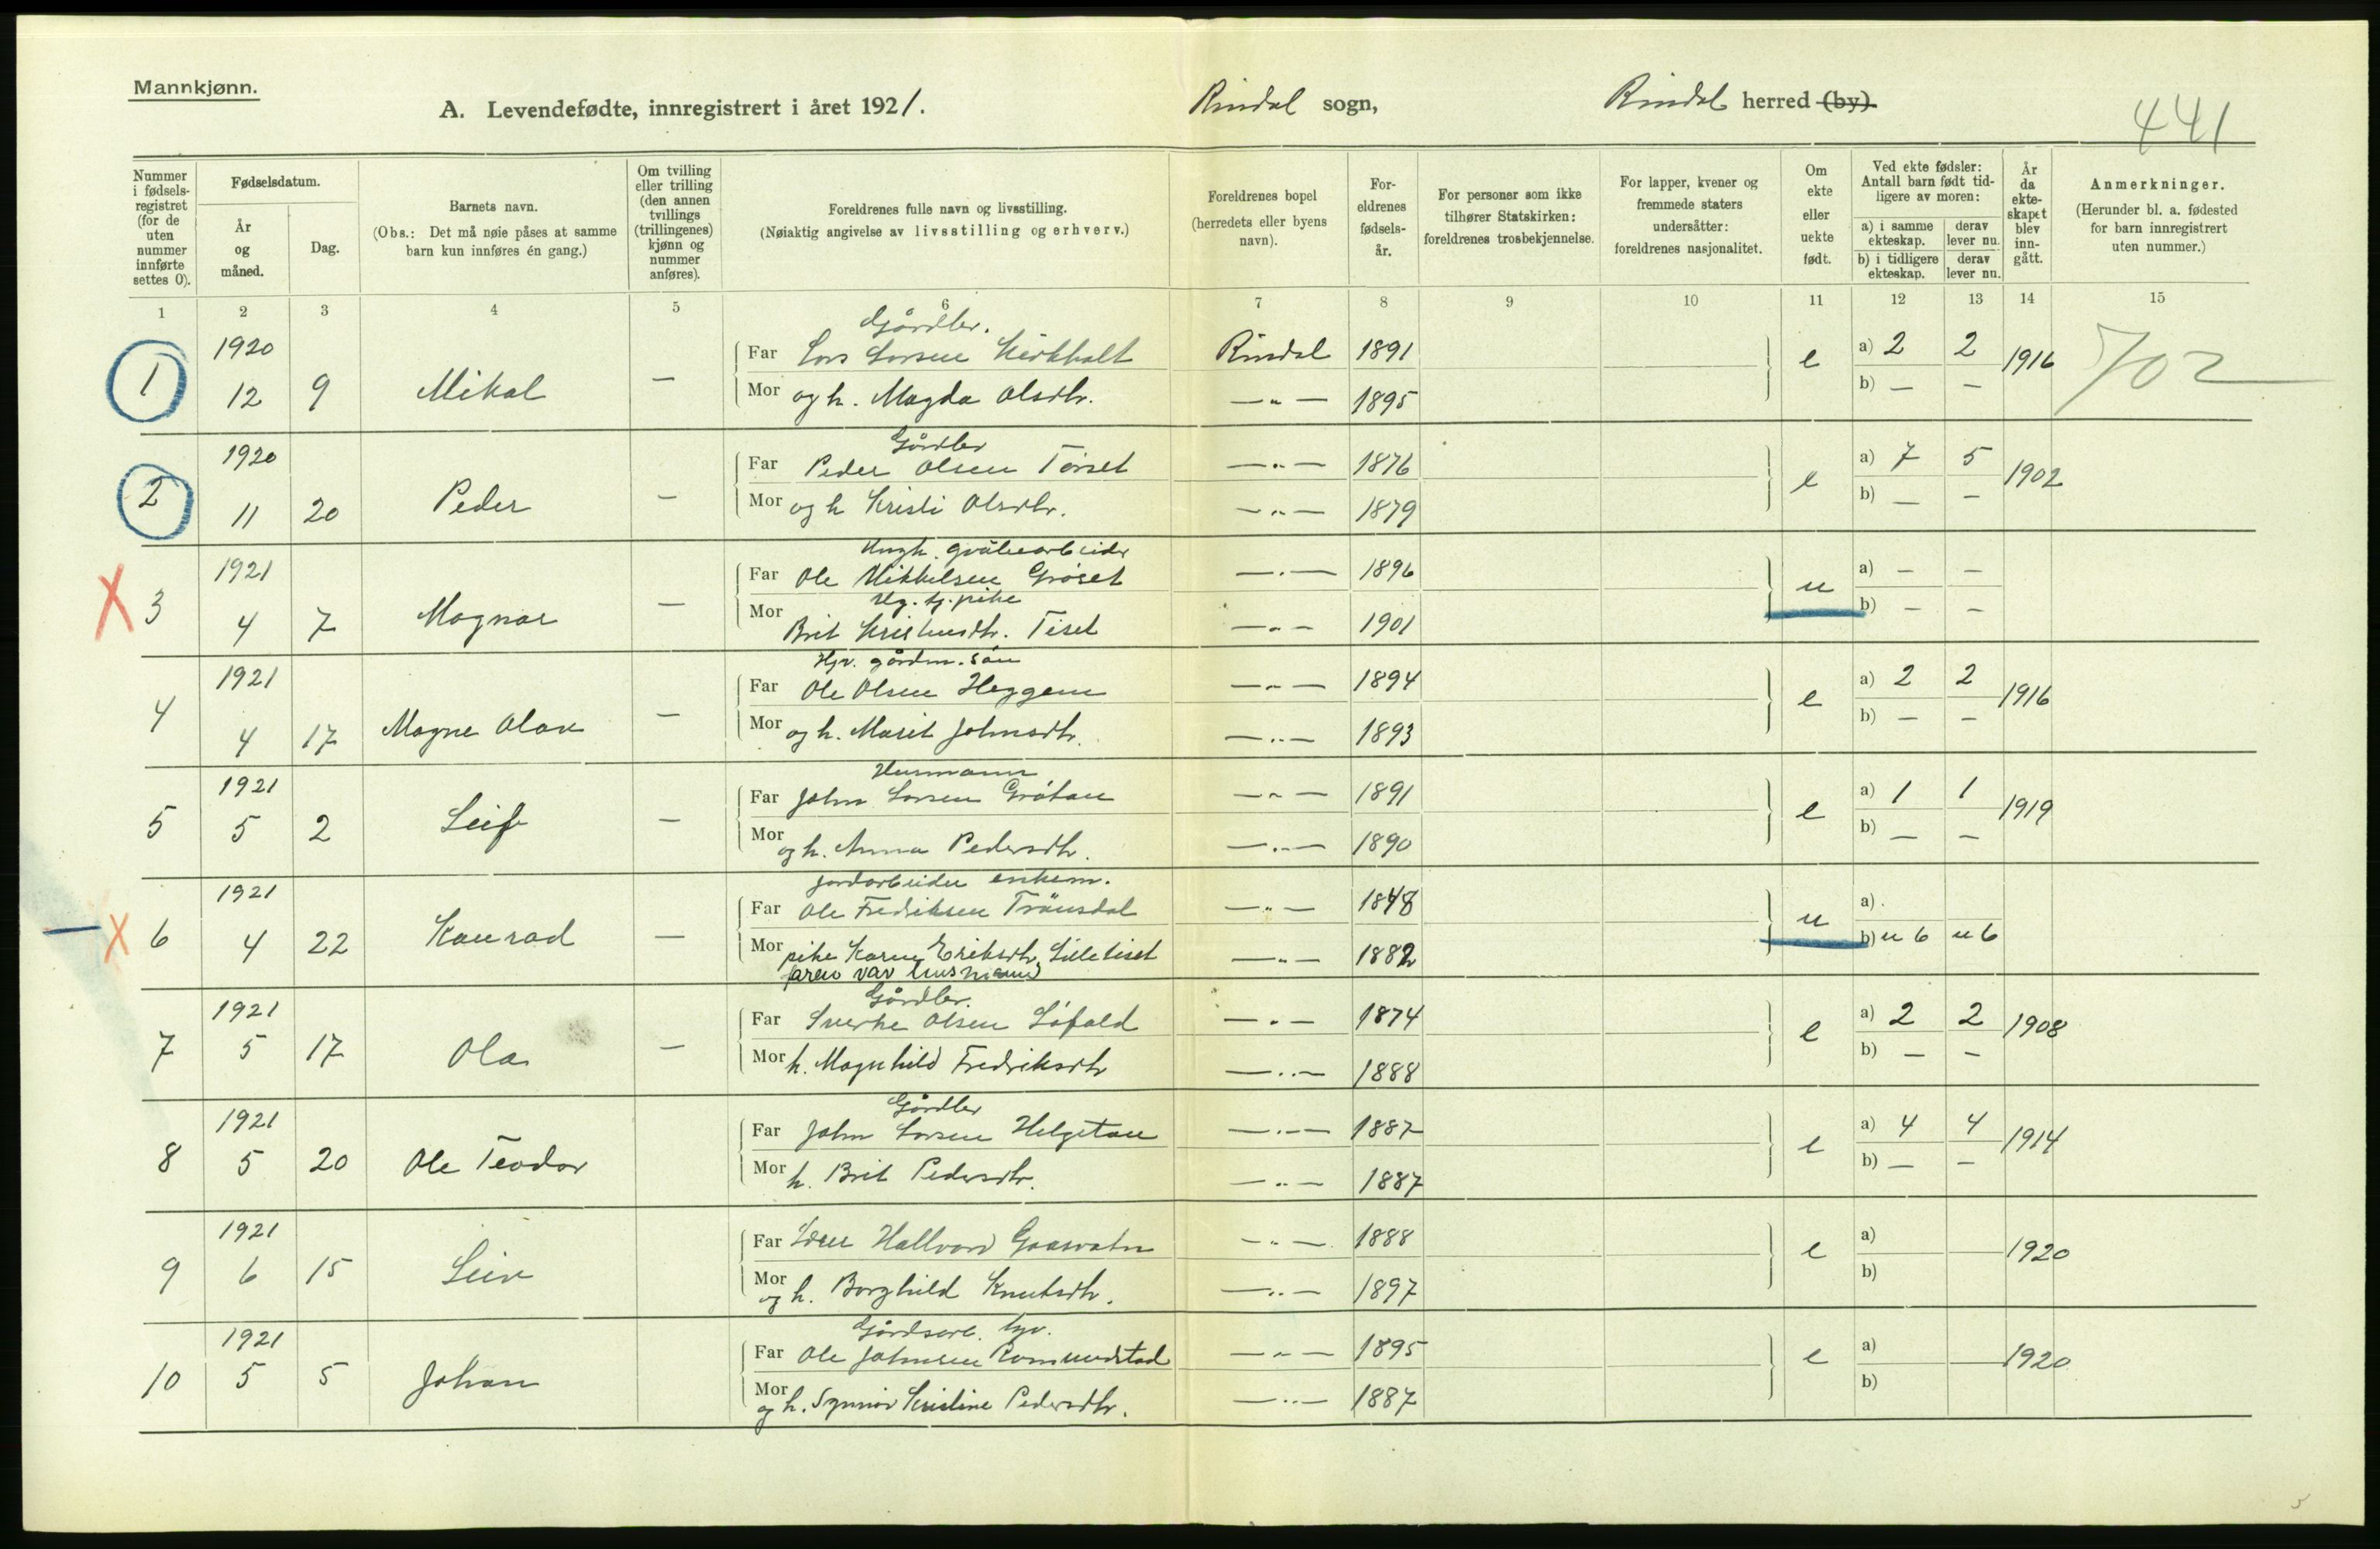 Mannkjønn.
A. Levendefødte, innregistrert i året 1921.
Rindal sogn,
Rindal herred (by).
441
Nummer i fødsels-registret (for de uten nummer innførte settes 0).
Fødselsdatum.
År og måned.
Dag.
Barnets navn.
(Obs.: Det må nøie påses at samme barn kun innføres én gang.)
Om tvilling eller trilling (den annen tvillings (trillingenes) kjønn og nummer anføres).
Foreldrenes fulle navn og livsstilling.
(Nøiaktig angivelse av livsstilling og erhverv.)
Foreldrenes bopel (herredets eller byens navn).
For-eldrenes fødsels-år.
For personer som ikke tilhører Statskirken: foreldrenes trosbekjennelse.
For lapper, kvener og fremmede staters undersåtter: foreldrenes nasjonalitet.
Om ekte eller uekte født.
Ved ekte fødsler: Antall barn født tid-ligere av moren:
a) i samme ekteskap. derav lever nu.
b) i tidligere ekteskap. derav lever nu.
År da ekte-skapet blev inn-gått.
Anmerkninger.
(Herunder bl. a. fødested for barn innregistrert uten nummer.)
1 2 3 4 5 6 7 8 9 10 11 12 13 14 15
Gårdbr.
1920 Far Lars Larsen Kirkholt Rindal 1891 a) 2 2
1 12 9 Mikal — Mor og h. Magda Olsdtr. — " — 1895 e b) — — 1916 702
Gårdbr
1920 Far Peder Olsen Tørset — " — 1876 a) 7 5
2 11 20 Peder — Mor og h Kristi Olsdtr. — " — 1879 e b) — — 1902
Ungk. gruvearbeider
1921 Far Ole Mikkelsen Grøset — " — 1896 a) — —
Ug. tj. pike
3 4 7 Magnar — Mor Brit Kristensdtr. Tiset — " — 1901 u b) — —
Hjv. gårdm. søn
1921 Far Ole Olsen Heggem — " — 1894 a) 2 2
4 4 17 Magne Olav — Mor og h. Marit Johnsdtr. — " — 1893 e b) — — 1916
Husmann
1921 Far John Larsen Grøtan — " — 1891 a) 1 1
5 5 2 Leif — Mor og h. Anna Pedersdtr. — " — 1890 e b) — — 1919
jordarbeider enkem.
1921 Far Ole Fredriksen Trönsdal — " — 1848 a)
6 4 22 Konrad — Mor pike Karen Eriksdtr. Lilletiset — " — 1882 u b) u 6 u 6
faren var husmann
Gårdbr.
1921 Far Sverke Olsen Løfald — " — 1874 a) 2 2
7 5 17 Ola — Mor h. Magnhild Fredriksdtr — " — 1888 e b) — — 1908
Gårdbr
1921 Far John Larsen Helgetun — " — 1887 a) 4 4
8 5 20 Ole Teodor Mor h. Brit Pedersdtr. — " — 1887 e b) — — 1914
1921 Far Hallvard Gaasvatn — " — 1888 a)
9 6 15 Leiv Mor og h. Borghild Knutsdtr. — " — 1897 e b) 1920
1921 Far Ole Johnsen Romundstad — " — 1895 a)
10 5 5 Johan Mor og h. Synnöv Kristine Pedersdtr. — " — 1887 e b) 1920
5